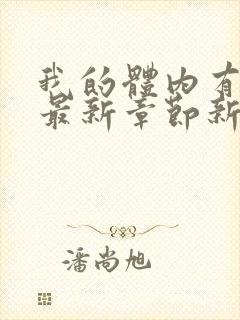 我的體內有
最新章節新
潘尚旭